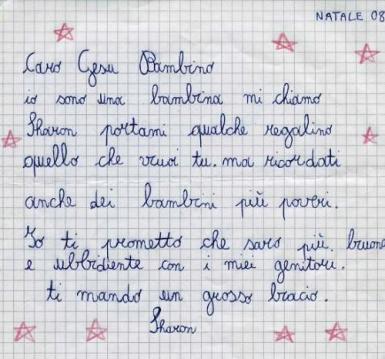 NATALE 08
Caro Gesu Bambino
io sono una bambina mi chiamo
Sharon portami qualche regalino
quello che vuoi tu. ma ricordati
anche dei bambini più poveri.
Io ti prometto che sarò più buona
e ubbidiente con i miei genitori.
ti mando un grosso bracio.
Sharon